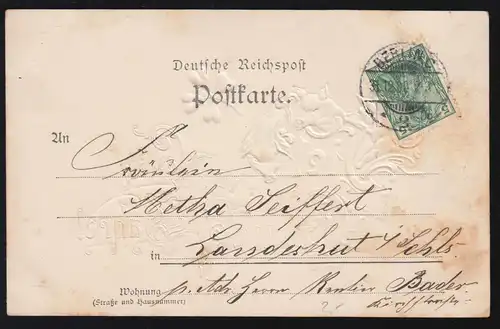 Deutsche Reichspost
Postkarte.
BERLIN
An
Fräulein
Metha Seiffert
in Landeshut i/Schls.
Wohnung
(Straße und Hausnummer)
p. Adr. Herrn Rentier Bader